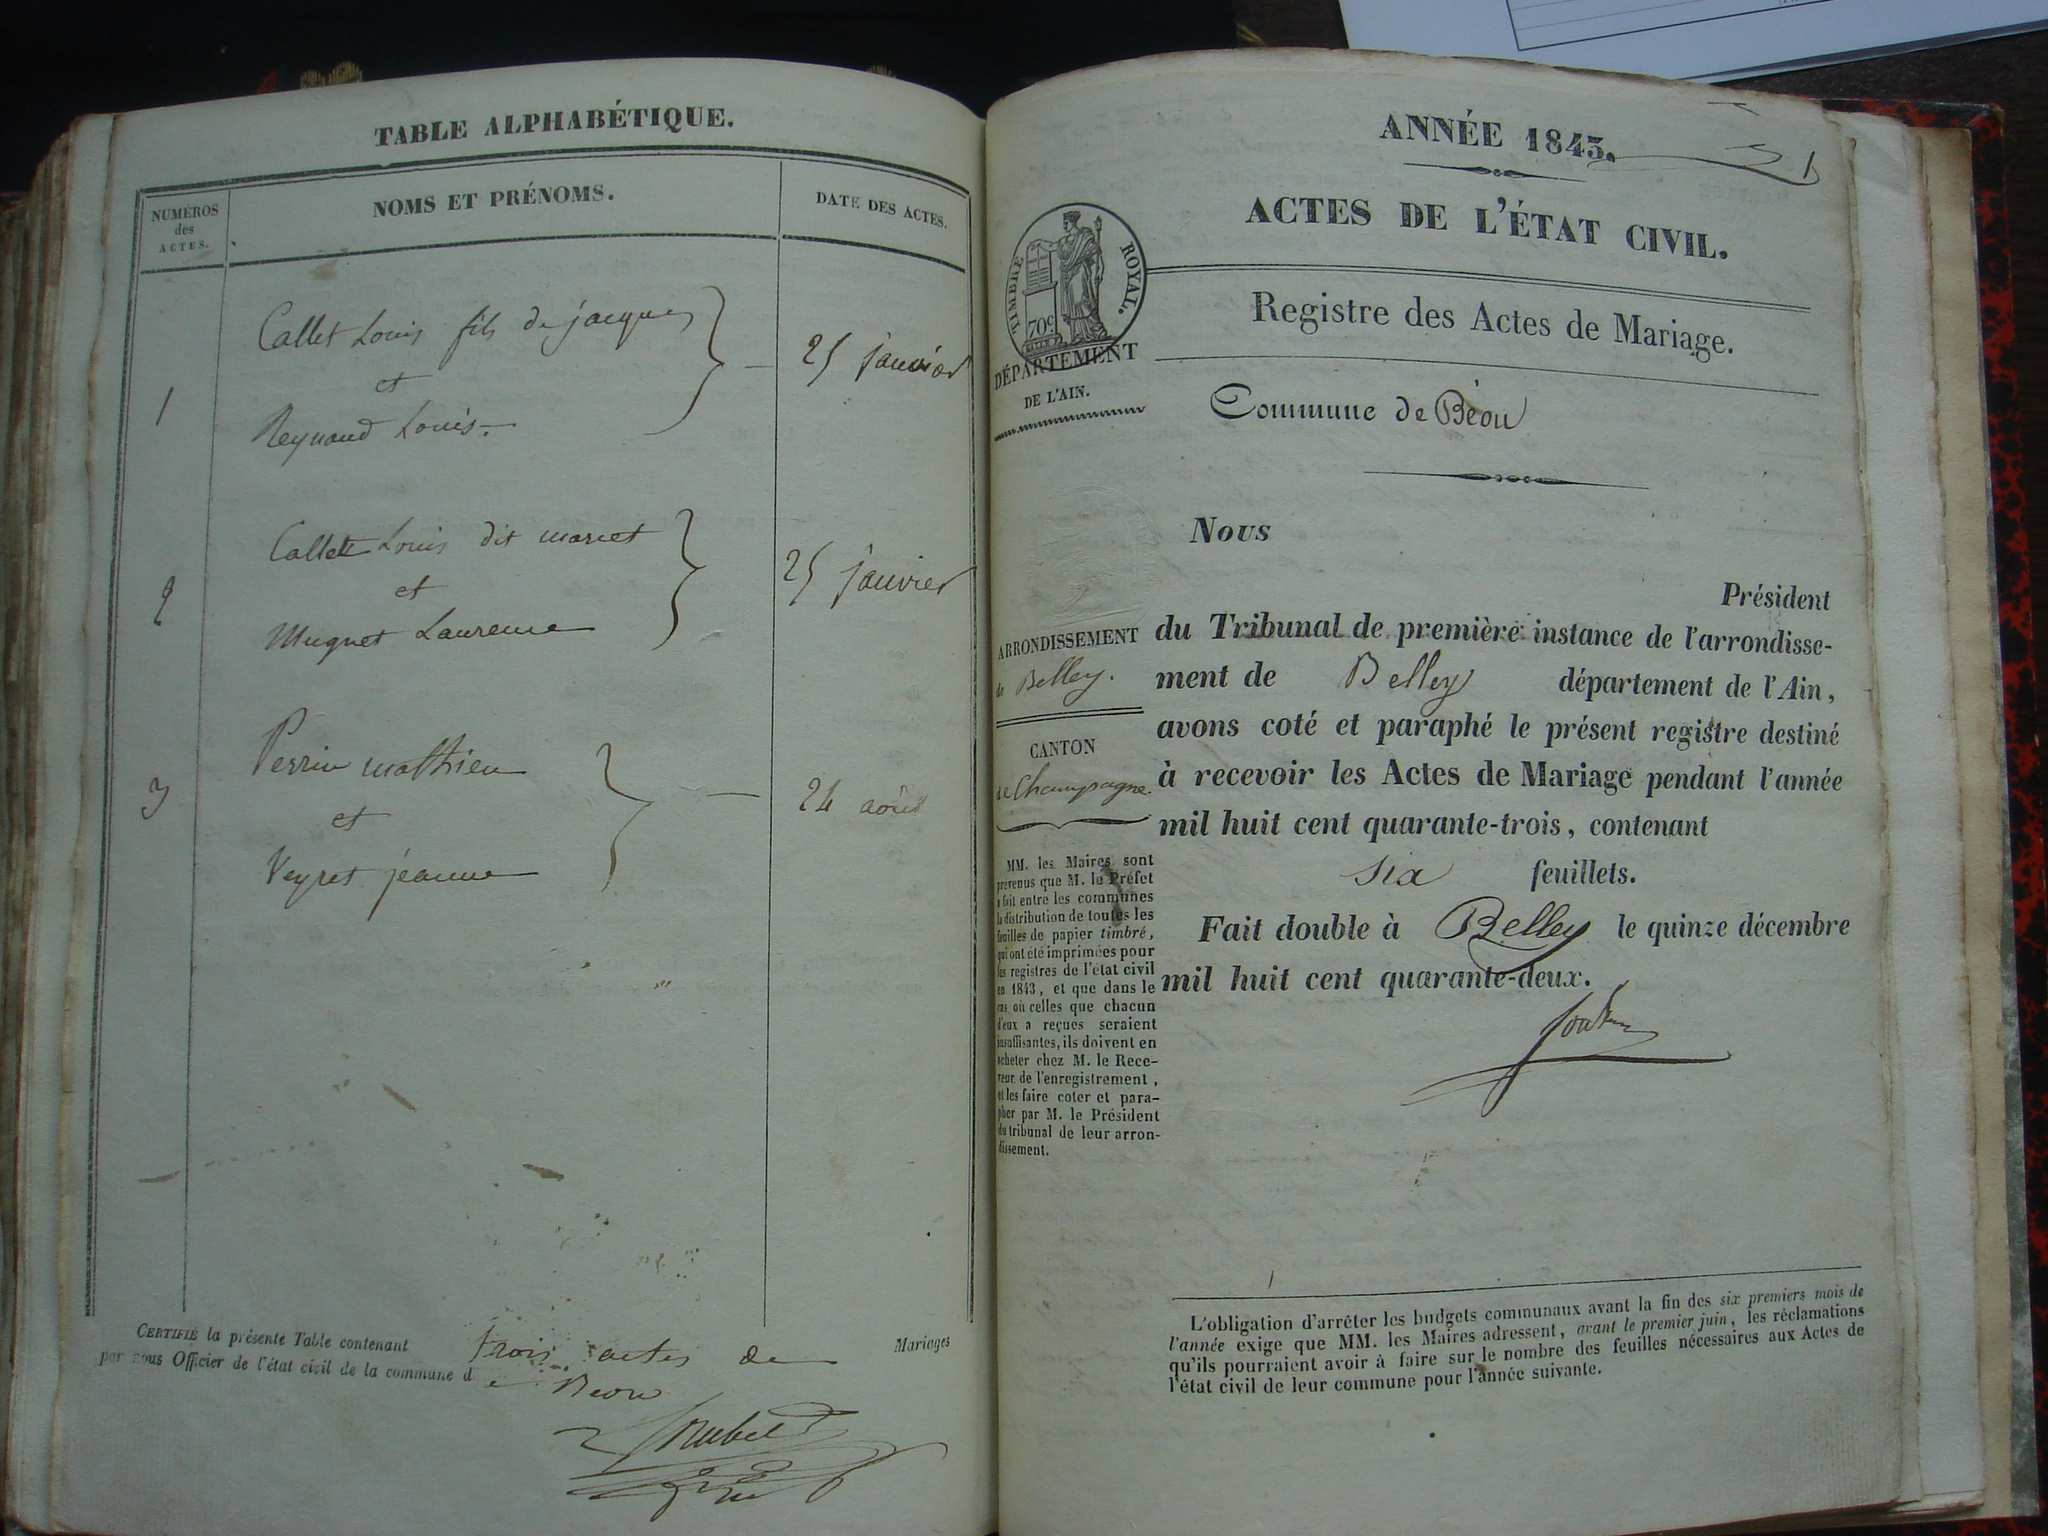 TABLE ALPHABÉTIQUE.
NUMÉROS
des
ACTES.
NOMS ET PRÉNOMS.
DATE DES ACTES.
1
Callet Louis fils de jacques
et
Reynaud Louis.
25 janvier
2
Callet Louis dit marcet
et
Muguet Laurence
25 janvier
3
Perrin mathieu
et
Veyret jeanne
24 août
CERTIFIÉ la présente Table contenant trois actes de Mariages
par nous Officier de l'état civil de la commune de Béon
ANNÉE 1843.
1
ACTES DE L'ÉTAT CIVIL.
TIMBRE ROYAL.
70c
Registre des Actes de Mariage.
DÉPARTEMENT
DE L'AIN.
Commune de Béon
Nous
Président
du Tribunal de première instance de l'arrondisse-
ment de Belley département de l'Ain,
avons coté et paraphé le présent registre destiné
à recevoir les Actes de Mariage pendant l'année
mil huit cent quarante-trois, contenant
six feuillets.
Fait double à Belley le quinze décembre
mil huit cent quarante-deux.
ARRONDISSEMENT
de Belley.
CANTON
de Champagne.
MM. les Maires sont
prévenus que M. le Préfet
a fait entre les communes
la distribution de toutes les
feuilles de papier timbré,
qui ont été imprimées pour
les registres de l'état civil
en 1843, et que dans le
cas où celles que chacun
d'eux a reçues seraient
insuffisantes, ils doivent en
acheter chez M. le Rece-
veur de l'enregistrement,
et les faire coter et para-
pher par M. le Président
du tribunal de leur arron-
dissement.
L'obligation d'arrêter les budgets communaux avant la fin des six premiers mois de
l'année exige que MM. les Maires adressent, avant le premier juin, les réclamations
qu'ils pourraient avoir à faire sur le nombre des feuilles nécessaires aux Actes de
l'état civil de leur commune pour l'année suivante.